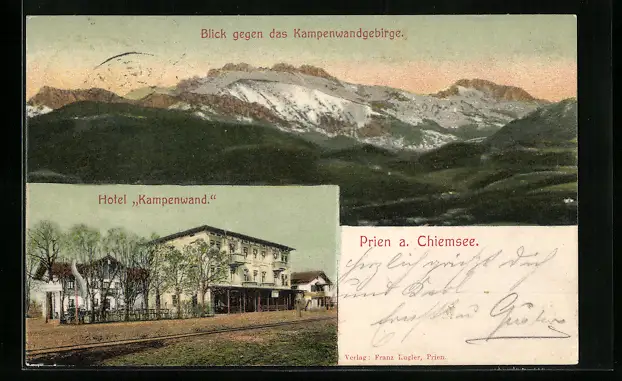 Blick gegen das Kampenwandgebirge.
Hotel „Kampenwand."
Prien a. Chiemsee.
Herzlich grüßt dich
und
Gustav
Verlag: Franz Lugler, Prien.